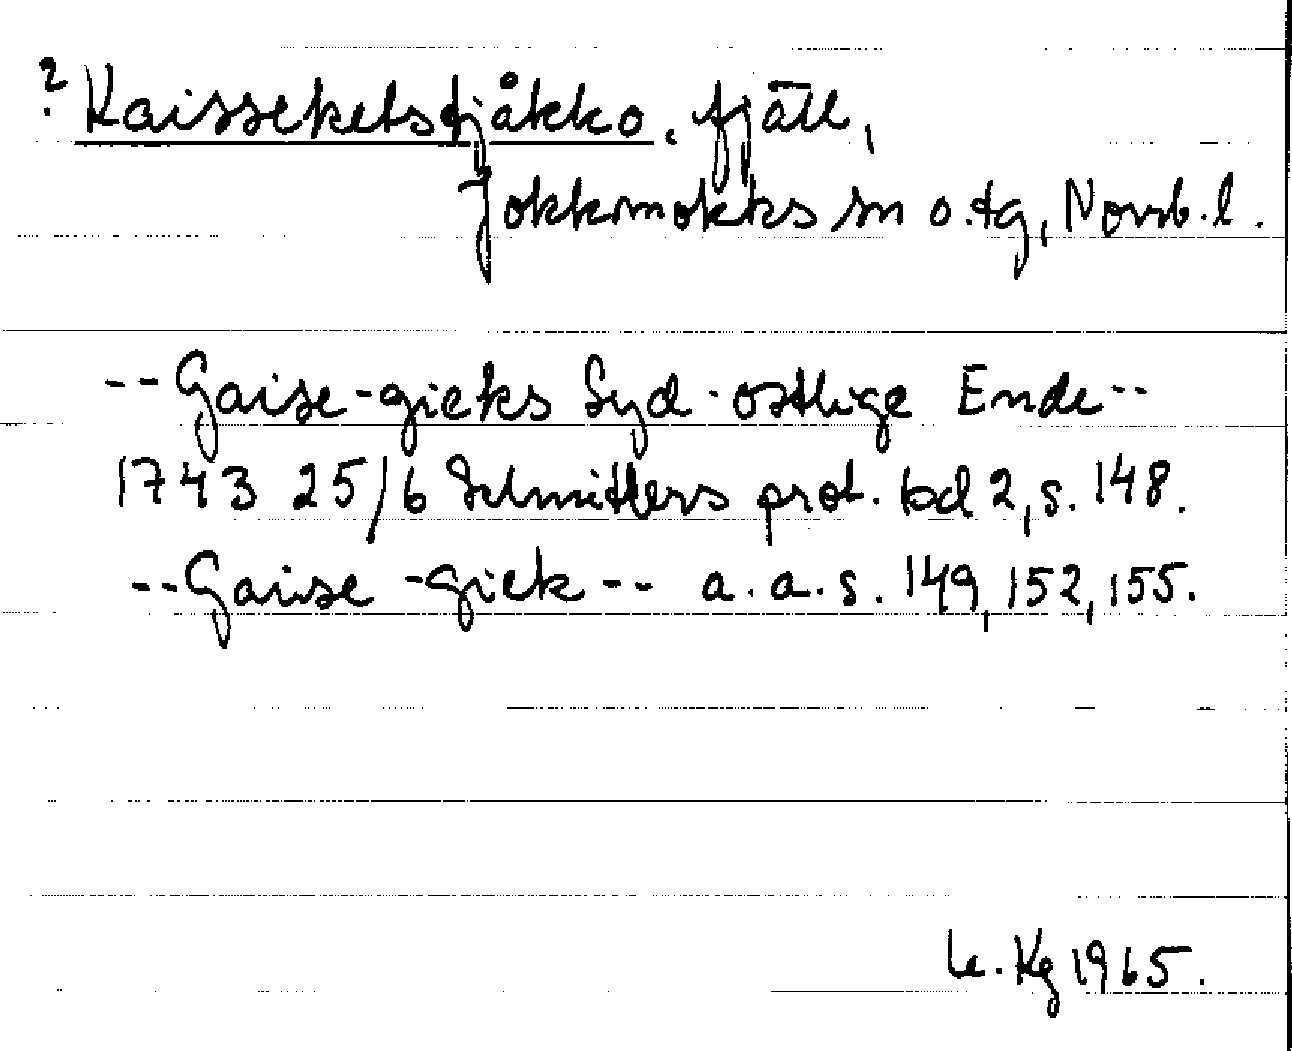 ? Kaisseketstjåkko. fjäll,
Jokkmokks sn o. tg, Norrb. l.
-- Gaise-gieks Syd-ostlige Ende --
1743 25/6 Schnitlers prot. bd 2, s. 148.
-- Gaise -giek -- a. a. s. 149, 152, 155.
Kg 1965.